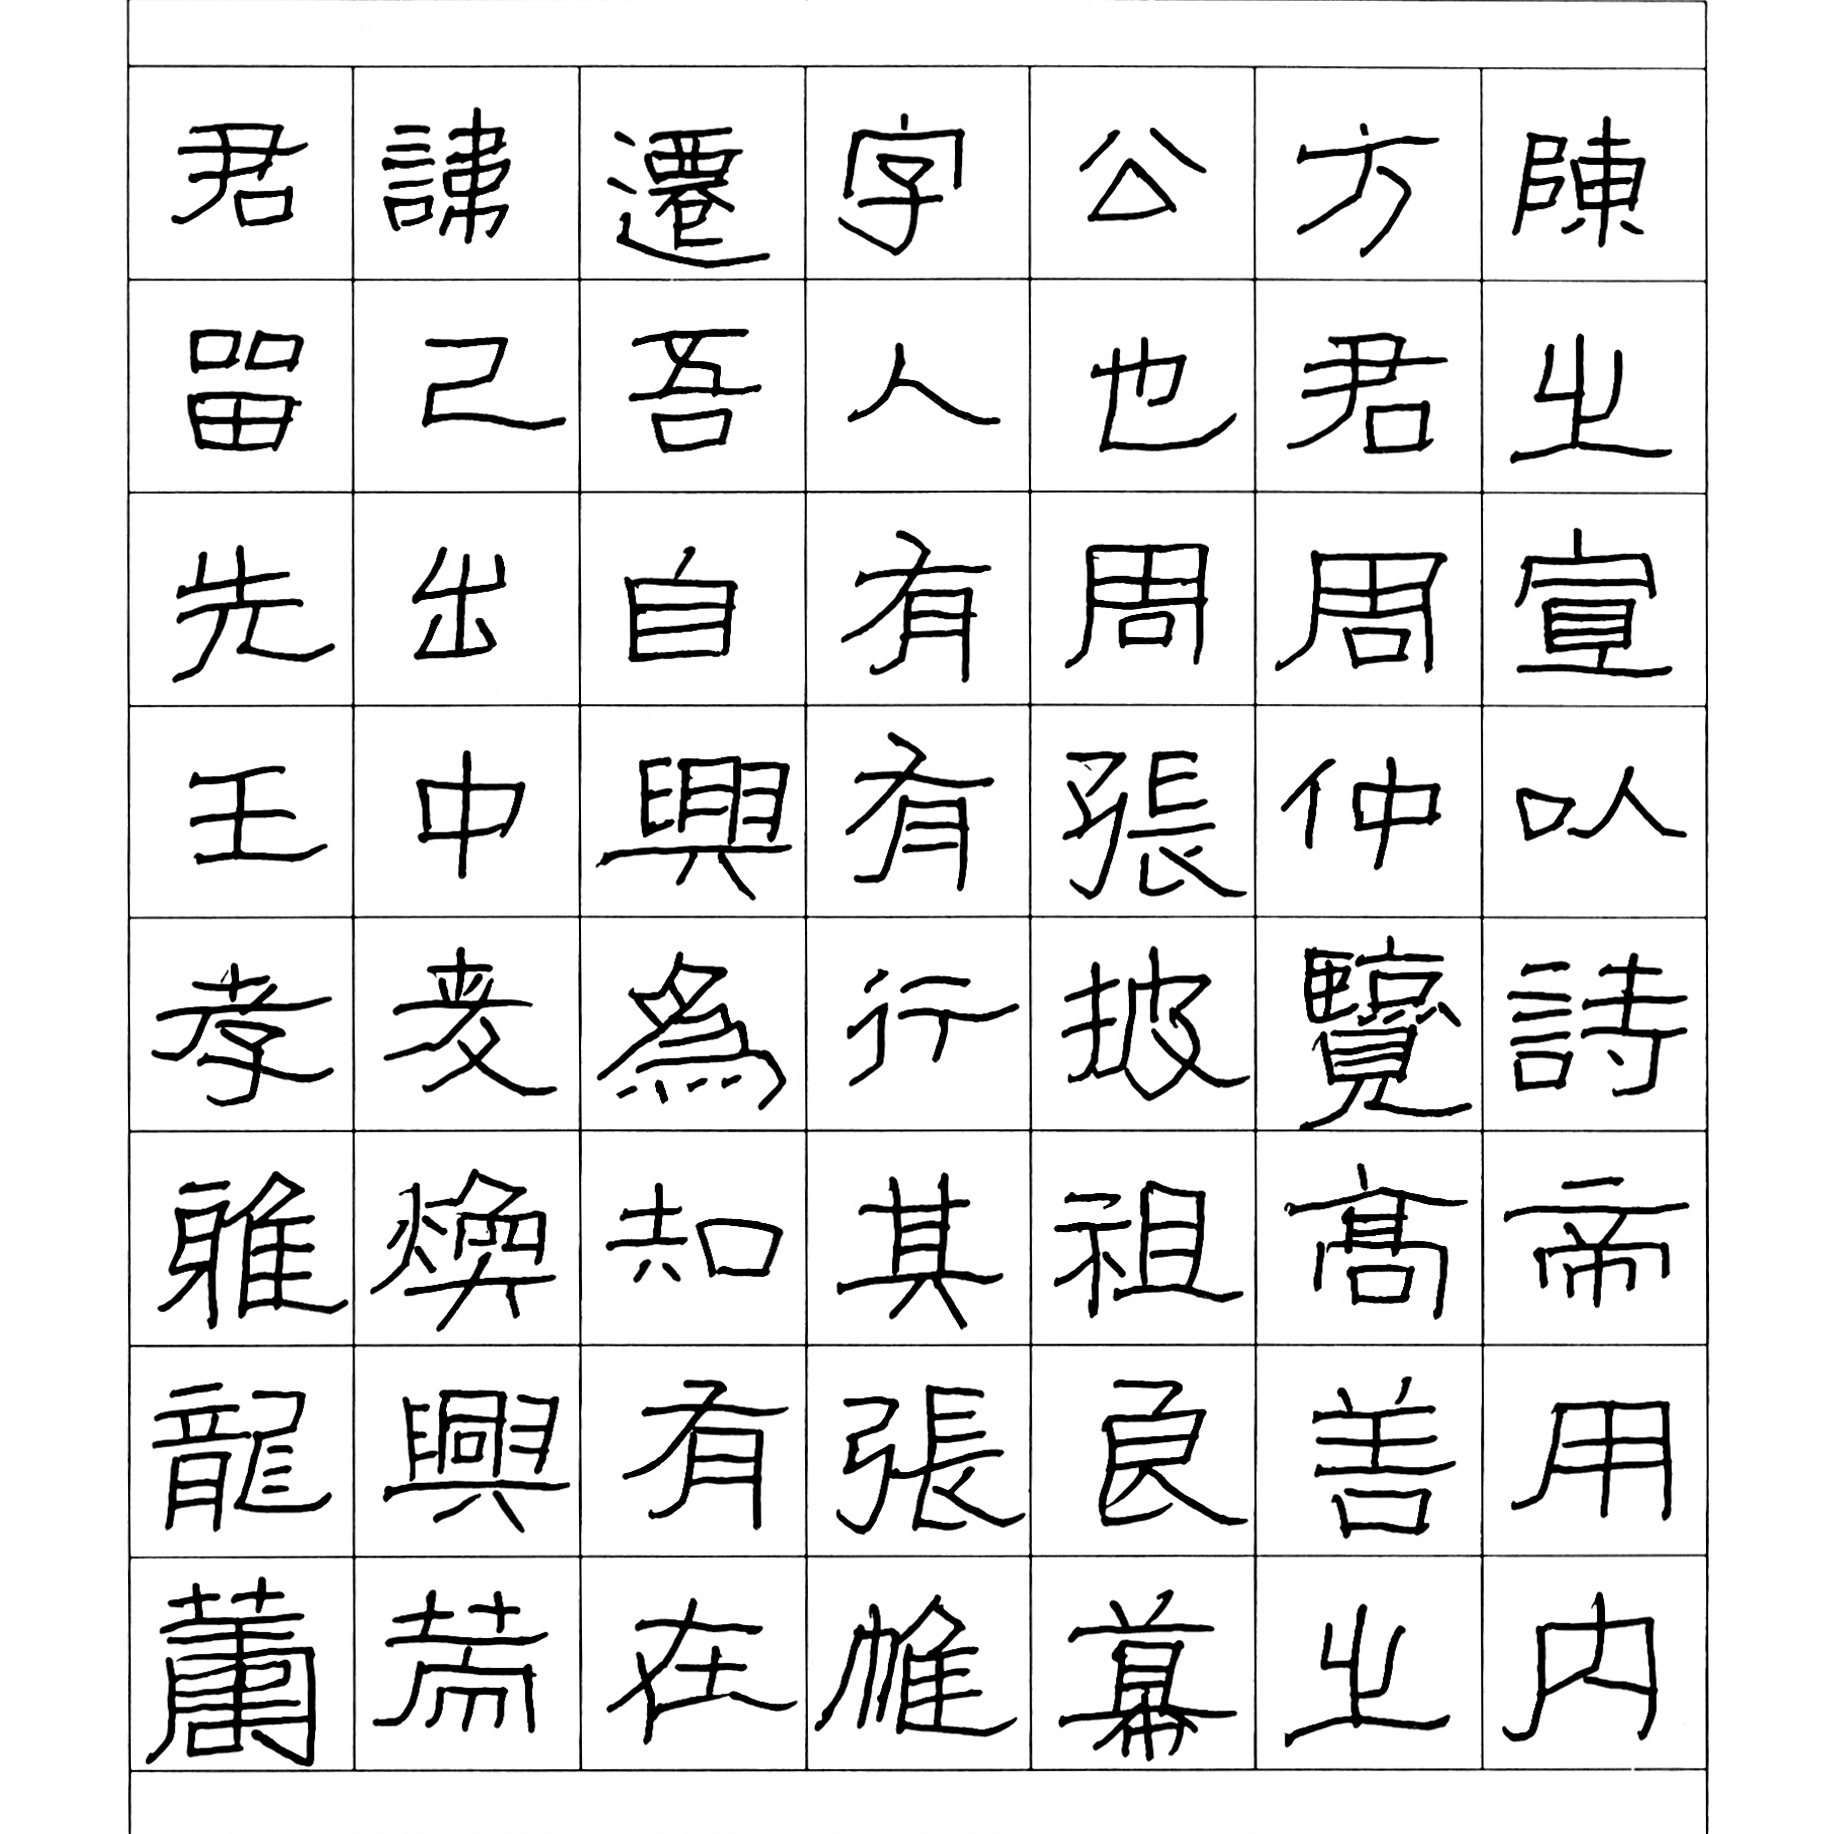 君諱遷字公方陳
留己吾人也君之
先出自有周周宣
王中興有張仲以
孝友爲行披覽詩
雅煥知其祖高帝
龍興有張良善用
籌策在帷幕之內